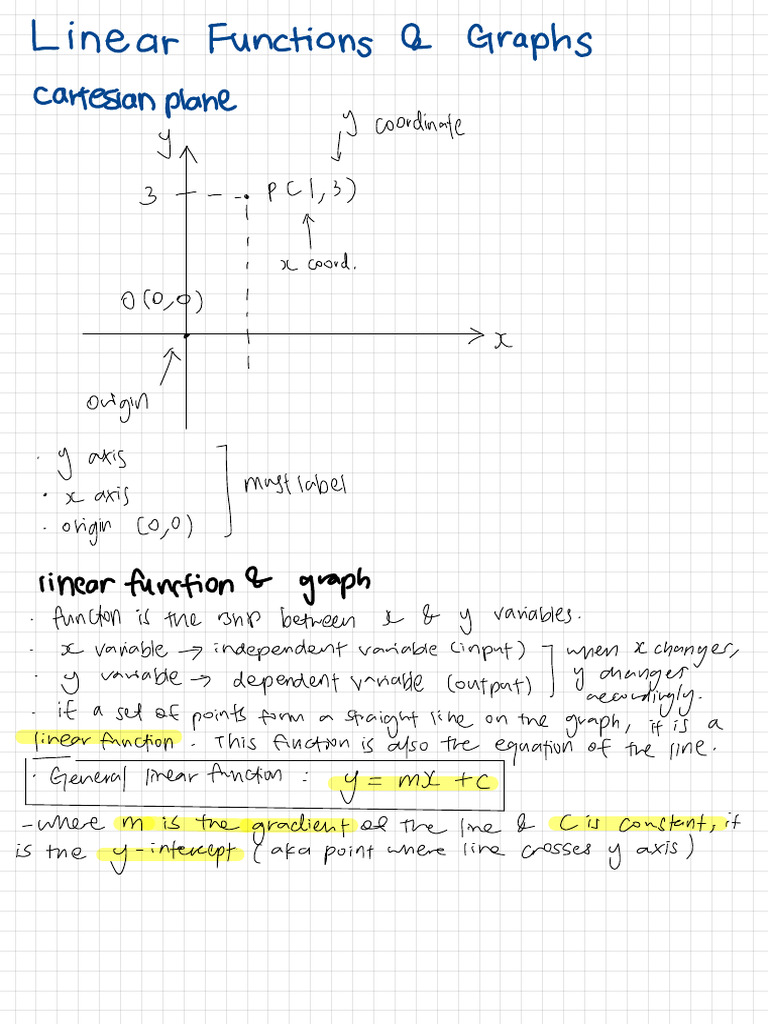 Linear Functions & Graphs
cartesian plane
y coordinate
y
3
P(1,3)
x coord.
O(0,0)
x
origin
· y axis
· x axis
· origin (0,0)
must label
linear function & graph
· function is the between x & y variables.
· x variable → independent variable (input)
· y variable → dependent variable (output)
when x changes,
y changes
accordingly.
· if a set of points form a straight line on the graph, it is a
linear function. This function is also the equation of the line.
· General linear function : y = mx + c
- where m is the gradient of the line & c is constant, it
is the y-intercept (aka point where line crosses y axis)